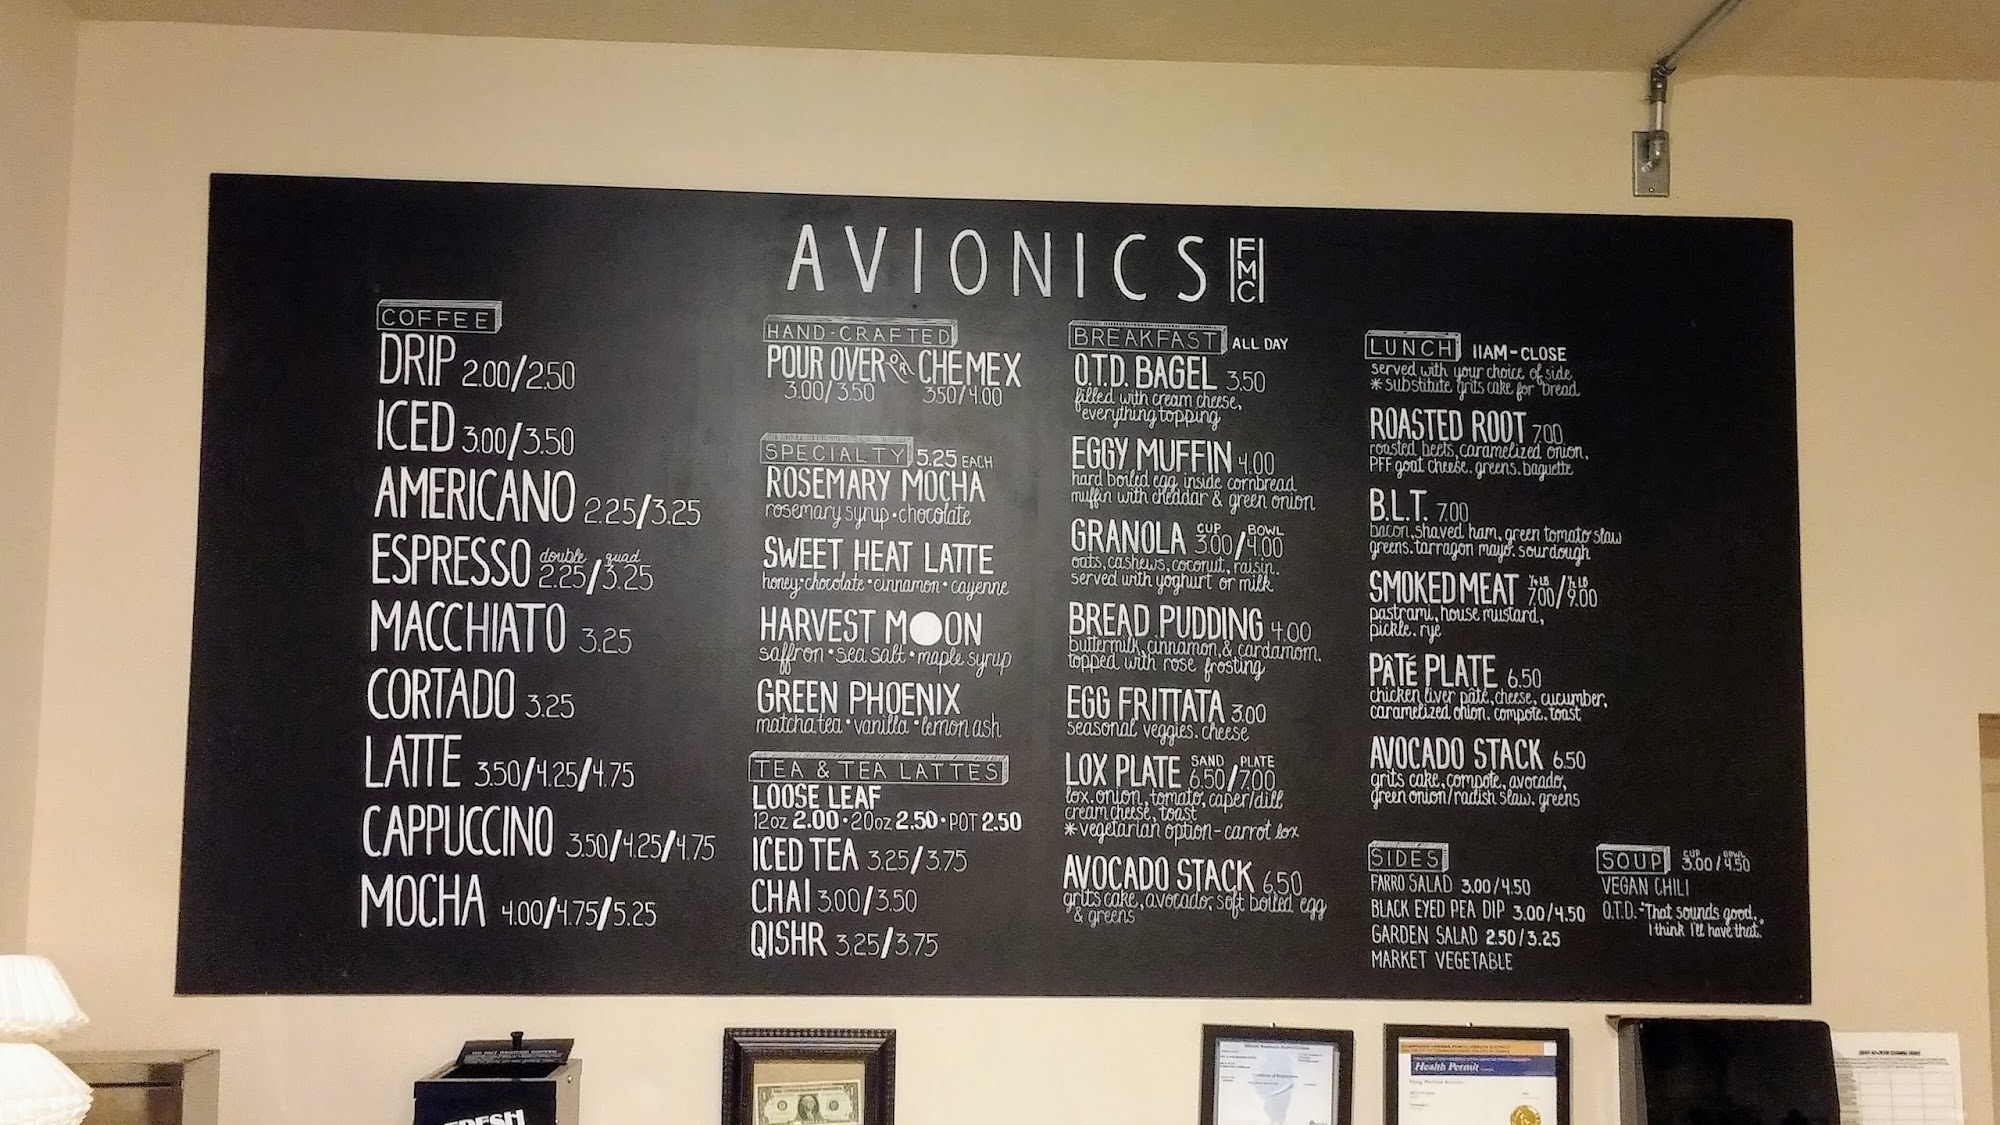 AVIONICS FMC
COFFEE
DRIP 2.00/2.50
ICED 3.00/3.50
AMERICANO 2.25/3.25
ESPRESSO double 2.25/quad 3.25
MACCHIATO 3.25
CORTADO 3.25
LATTE 3.50/4.25/4.75
CAPPUCCINO 3.50/4.25/4.75
MOCHA 4.00/4.75/5.25
HAND-CRAFTED
POUR OVER OR CHEMEX
3.00/3.50 3.50/4.00
SPECIALTY 5.25 EACH
ROSEMARY MOCHA
rosemary syrup • chocolate
SWEET HEAT LATTE
honey • chocolate • cinnamon • cayenne
HARVEST MOON
saffron • sea salt • maple syrup
GREEN PHOENIX
matcha tea • vanilla • lemon ash
TEA & TEA LATTES
LOOSE LEAF
12oz 2.00 • 20oz 2.50 • POT 2.50
ICED TEA 3.25/3.75
CHAI 3.00/3.50
QISHR 3.25/3.75
BREAKFAST ALL DAY
O.T.D. BAGEL 3.50
filled with cream cheese,
everything topping
EGGY MUFFIN 4.00
hard boiled egg inside cornbread
muffin with cheddar & green onion
GRANOLA CUP 3.00/BOWL 4.00
oats, cashews, coconut, raisin.
served with yoghurt or milk
BREAD PUDDING 4.00
buttermilk, cinnamon, & cardamom.
topped with rose frosting
EGG FRITTATA 3.00
seasonal veggies. cheese
LOX PLATE SAND 6.50/PLATE 7.00
lox. onion, tomato, caper/dill
cream cheese, toast
* vegetarian option - carrot lox
AVOCADO STACK 6.50
grits cake, avocado, soft boiled egg
& greens
LUNCH 11AM-CLOSE
served with your choice of side
* substitute grits cake for bread
ROASTED ROOT 7.00
roasted beets, caramelized onion,
PFF goat cheese. greens. baguette
B.L.T. 7.00
bacon, shaved ham, green tomato slaw
greens. tarragon mayo. sourdough
SMOKED MEAT ¼ LB 7.00/½ LB 9.00
pastrami, house mustard,
pickle. rye
PÂTÉ PLATE 6.50
chicken liver pâté, cheese, cucumber,
caramelized onion. compote. toast
AVOCADO STACK 6.50
grits cake, compote, avocado,
green onion/radish slaw. greens
SIDES
FARRO SALAD 3.00/4.50
BLACK EYED PEA DIP 3.00/4.50
GARDEN SALAD 2.50/3.25
MARKET VEGETABLE
SOUP CUP 3.00/BOWL 4.50
VEGAN CHILI
O.T.D. - "That sounds good,
I think I'll have that."
FRESH
Health Permit